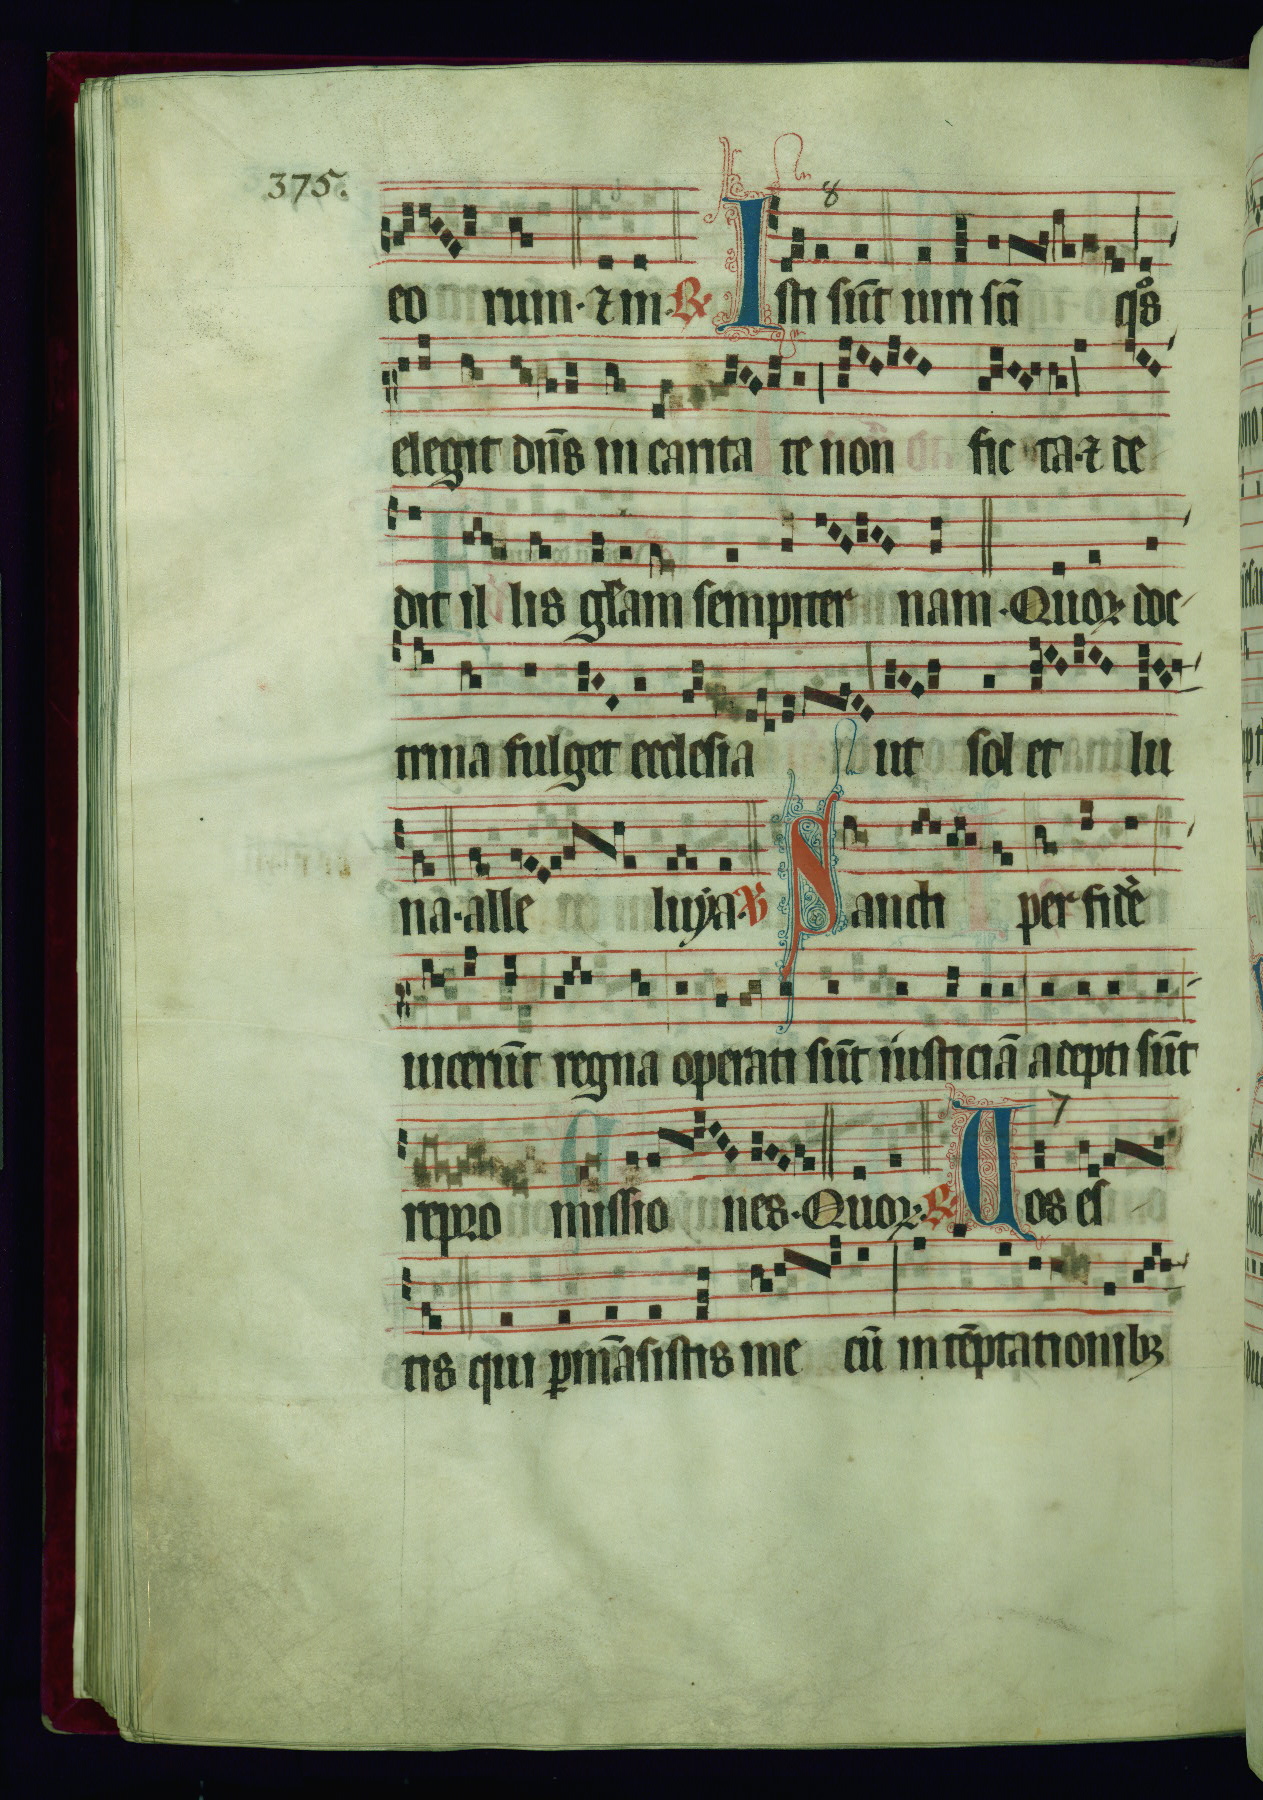 375.
8
eo rum · ⁊ in · ℟ Isti sūt uiri scī q̊s
elegit dn̄s in carita te non fic ta · ⁊ de
dit il lis gl̄am sempiter nam · Quoꝝ doc
trina fulget ecclesia ut sol et lu
na · alle luya · ℣ Sancti per fidē
uicerūt regna operati sūt iusticiā adepti sūt
7
repro missio nes · Quoꝝ · ℟ Uos es
tis qui ꝑmāsistis me cū in tēptationibꝫ